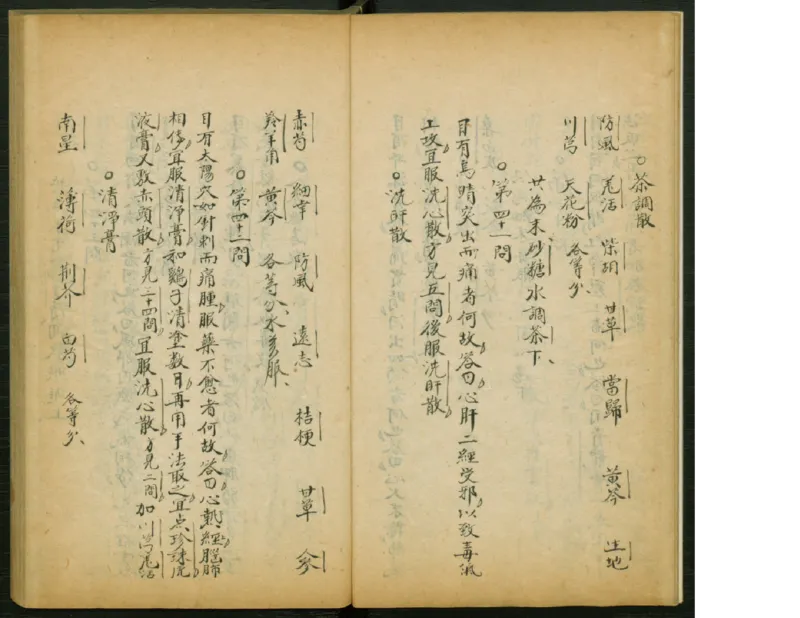 ○茶調散
防風 羌活 柴胡 甘草 當歸 黄芩 生地
川芎 天花粉 各等分、
共為末、砂糖水調茶下、
○第四十一問
目有烏睛突出而痛者何故答曰心肝二經受邪以致毒氣
上攻宜服洗心散方見五問後服洗肝散
○洗肝散
赤芍 細辛 防風 遠志 桔梗 甘草 參
羚羊角 黄芩 各等分、水煎服、
○第四十二問
目有太陽穴如針刺而痛腫服藥不愈者何故答曰心熱經腦肺
相傳宜服清淨膏和鷄子清塗数日再用手法取之宜点珍珠
液膏又敷赤頭散方見三十四問宜服洗心散方見二問加川芎羌活
○清淨膏
南星 薄荷 荆芥 白芍 各等分、